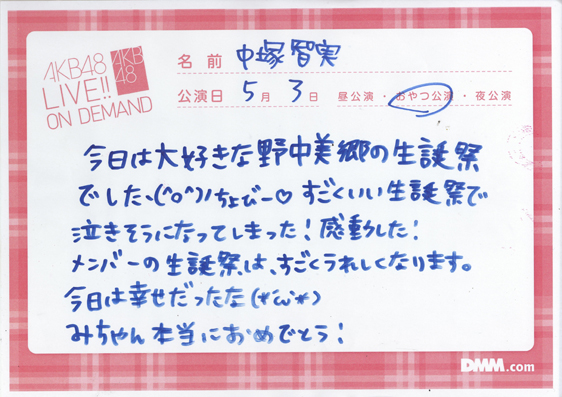 AKB48
LIVE!!
ON DEMAND
AKB
48
名前 中塚智実
公演日 5月3日 昼公演・おやつ公演・夜公演
今日は大好きな野中美郷の生誕祭
でした、(^o^)ノちょびー♡ すごくいい生誕祭で
泣きそうになってしまった！感動した！
メンバーの生誕祭は、すごくうれしくなります。
今日は幸せだったな(*´ω`*)
みちゃん本当におめでとう！
DMM.com